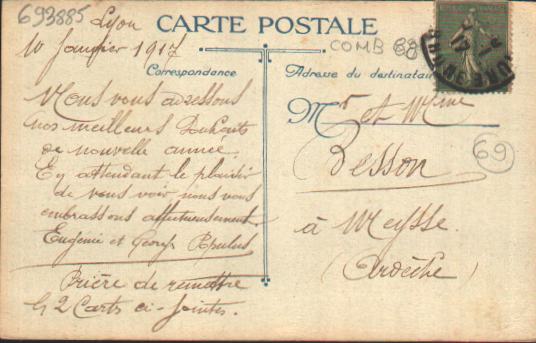 693885
Lyon
CARTE POSTALE
10 Janvier 1917
COMB 88
Correspondance
Adresse du destinataire
Nous vous adressons
nos meilleurs Souhaits
de nouvelle année.
En attendant le plaisir
de vous voir nous vous
embrassons affectueusement.
Eugénie et Georges
Prière de remettre
les 2 Carts ci-jointes.
Mr et Mme
Besson
69
à Meysse
(Ardèche)